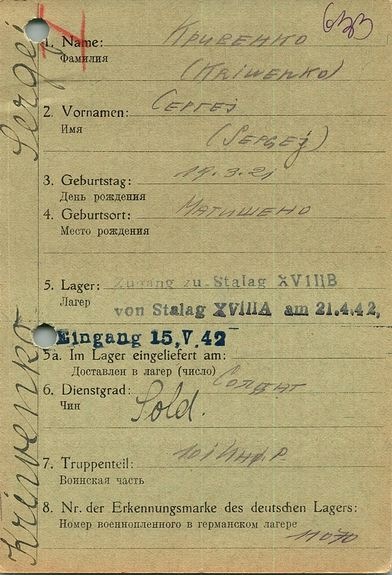 633
1. Name: Кривенко
Фамилия
(Kriwenko)
2. Vornamen: Сергеj
Имя
(Sergej)
3. Geburtstag: 17.3.21
День рождения
4. Geburtsort: Матишено
Место рождения
5. Lager: Zugang zu Stalag XVIIB
Лагер
von Stalag XVIIIA am 21.4.42,
Eingang 15.V.42
5a. Im Lager eingeliefert am:
Доставлен в лагер (число)
6. Dienstgrad: Солдат
Чин
Sold.
7. Truppenteil:
Воинская часть
8. Nr. der Erkennungsmarke des deutschen Lagers:
Номер военнопленного в германском лагере
11070
Kriwenko Sergej